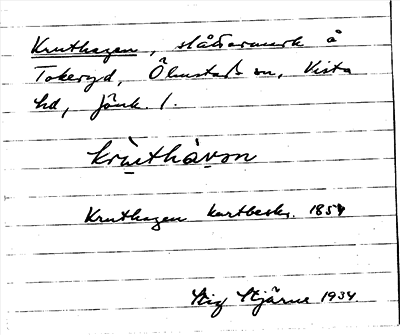 Kruthagen, slåttermark å
Tokeryd, Ölmstads sn, Vista
hd, Jönk. l.
krùthàvɷn
Kruthagen kartbeskr. 1854
Stig Stjärne 1934